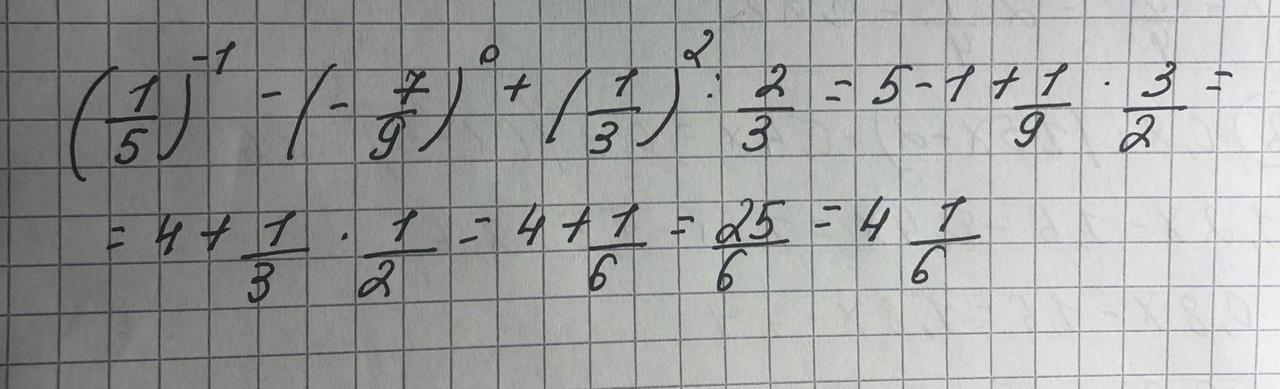 (1/5)^-1 - (-7/9)^0 + (1/3)^2 : 2/3 = 5 - 1 + 1/9 · 3/2 =
= 4 + 1/3 · 1/2 = 4 + 1/6 = 25/6 = 4 1/6